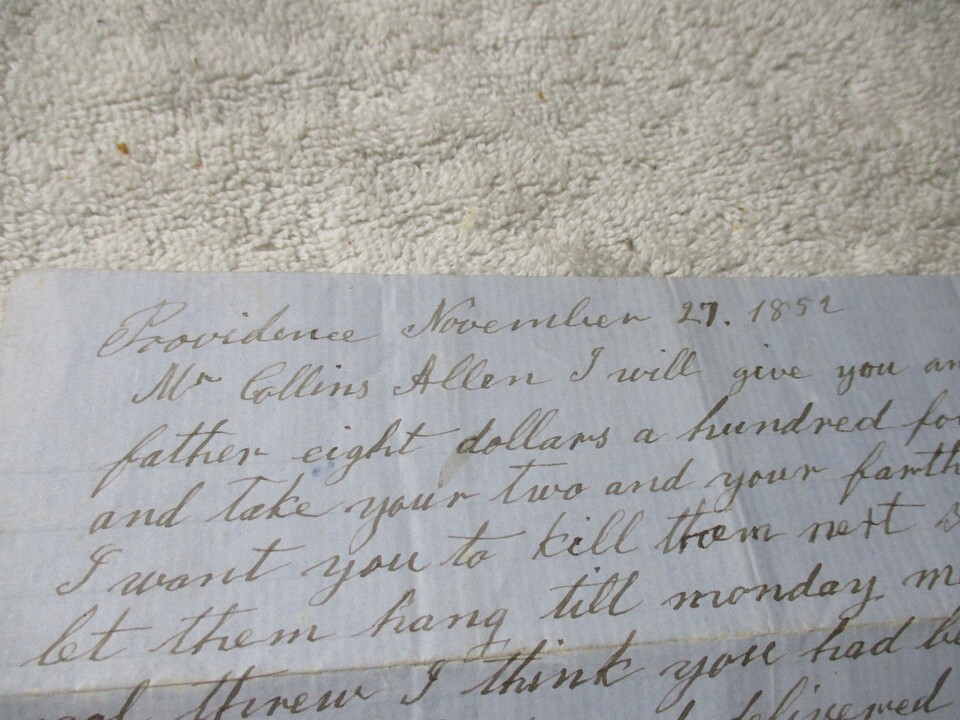 Providence November 27. 1852
Mr Collins Allen I will give you an
father eight dollars a hundred fo
and take your two and your farth
I want you to kill them next
let them hang till monday m
threw I think you had be
delivered